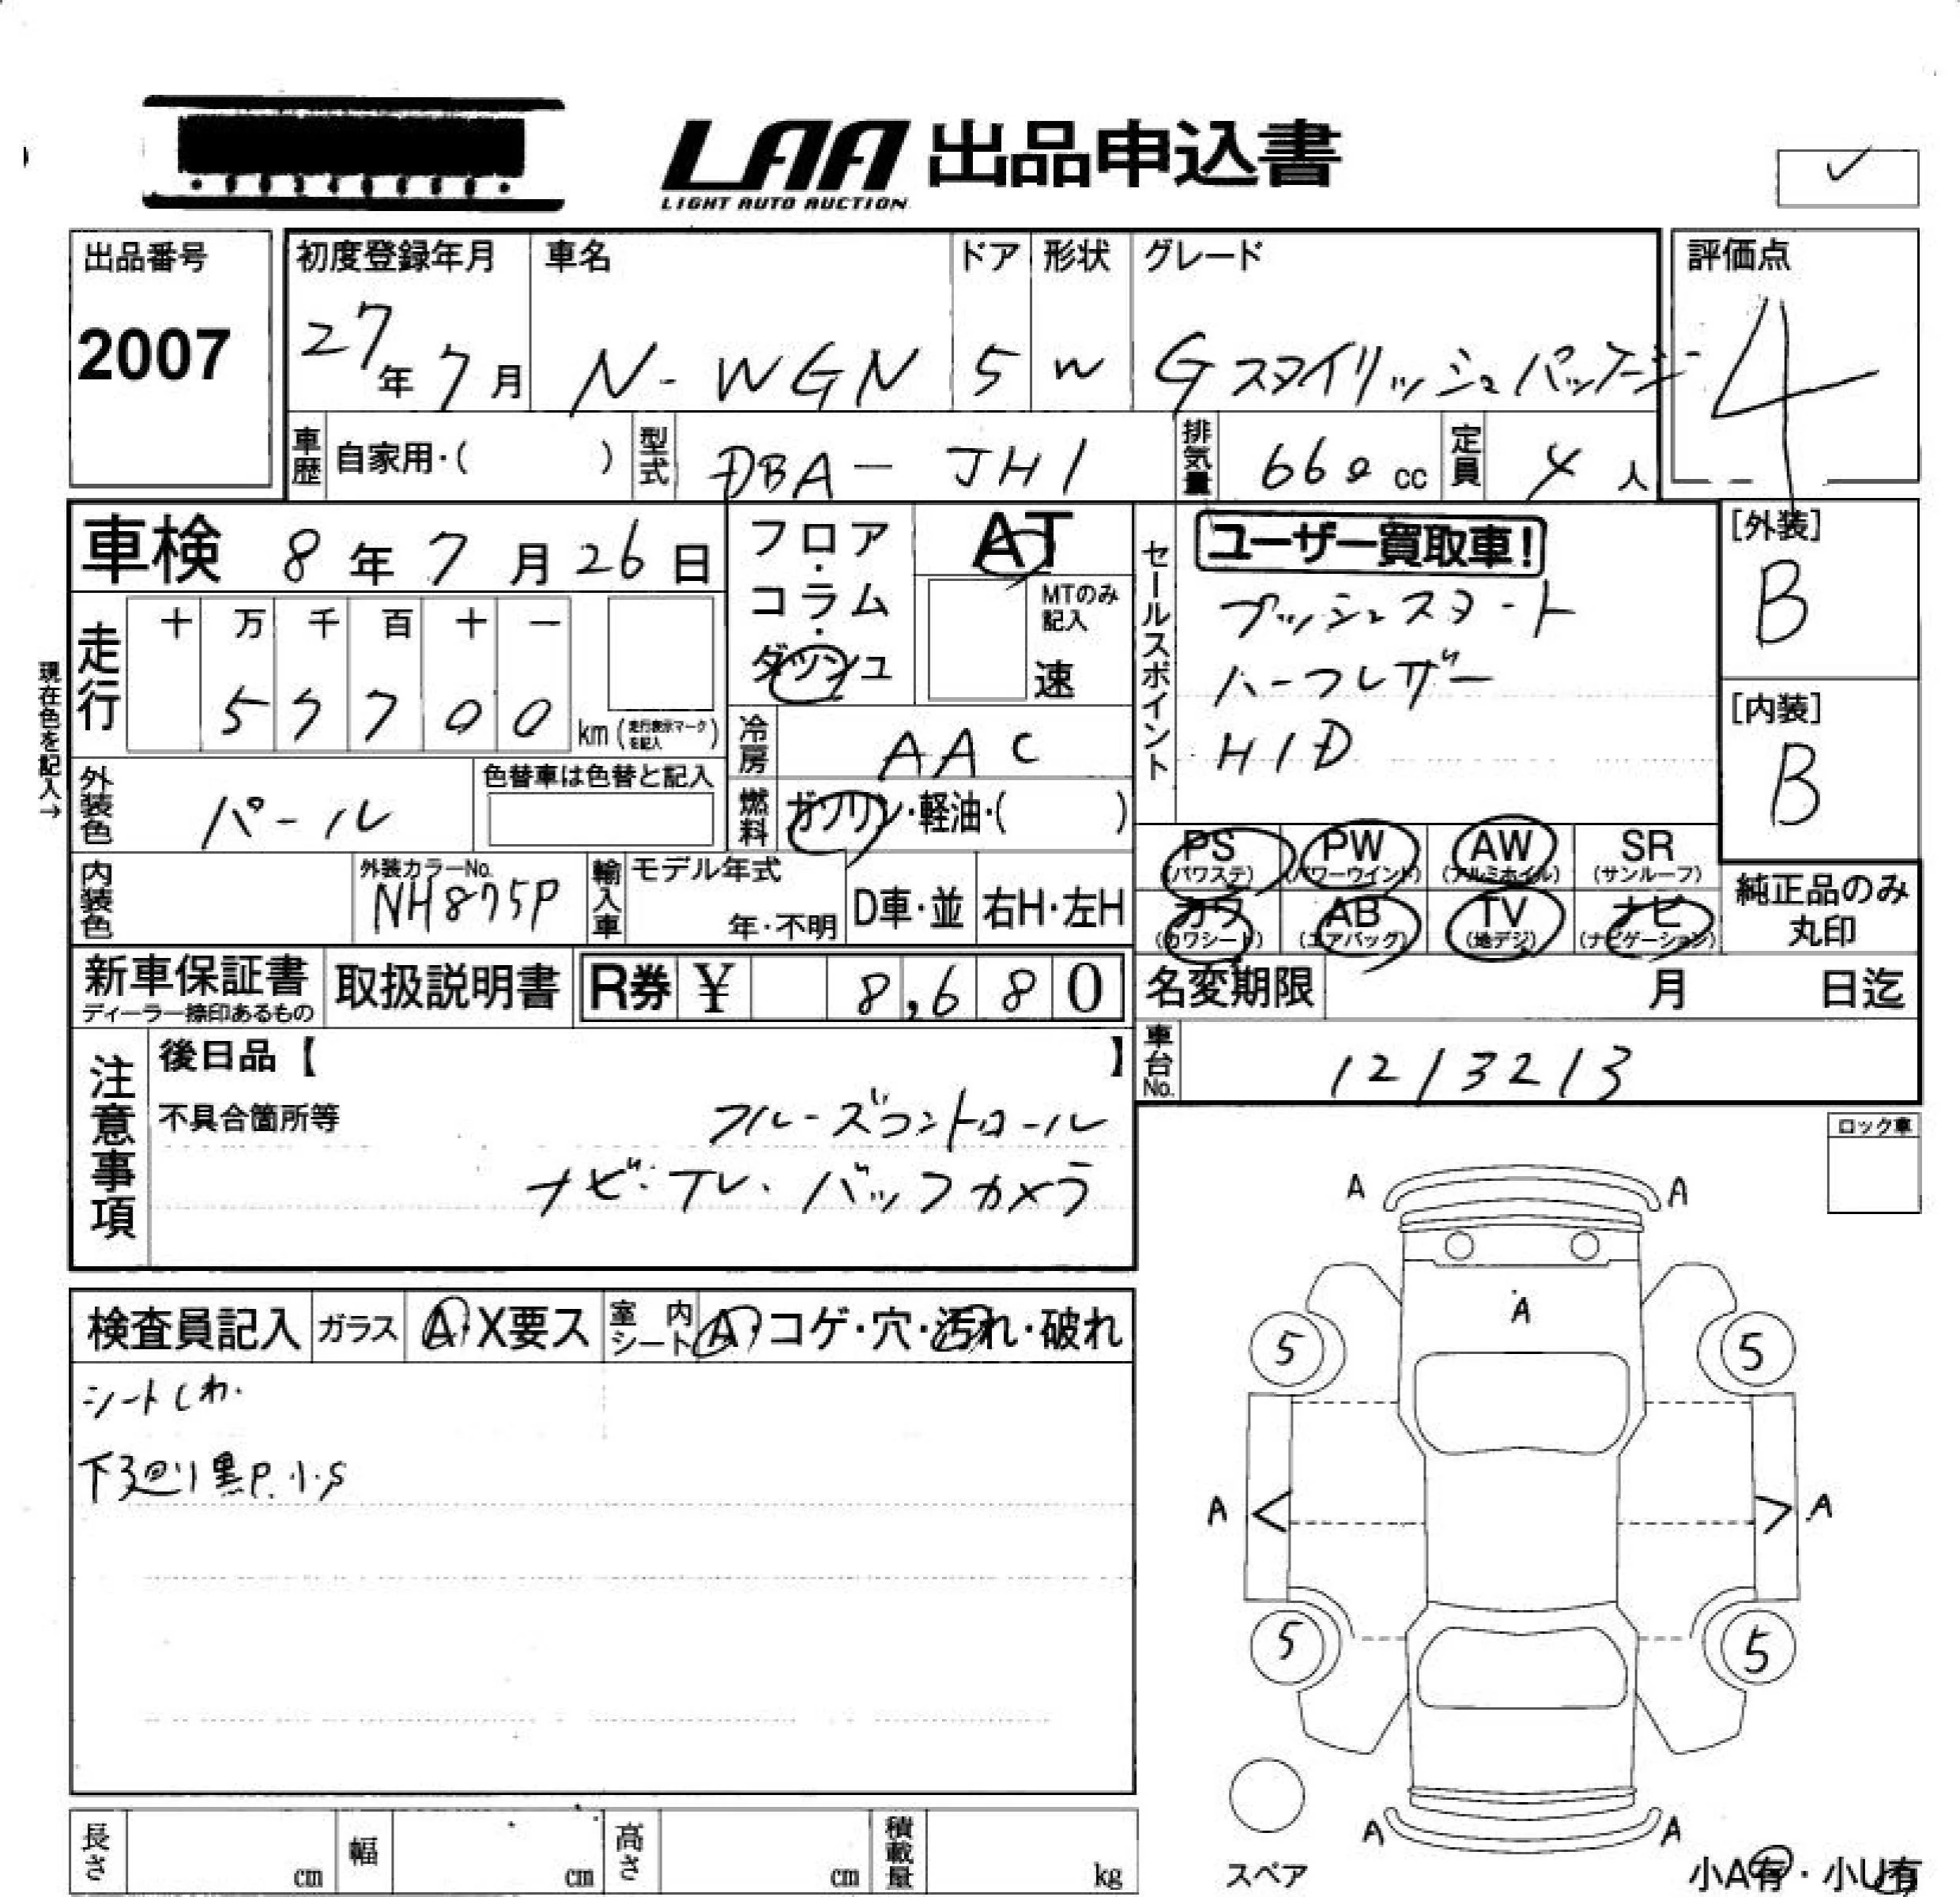 LAA 出品申込書
LIGHT AUTO AUCTION
出品番号
2007
初度登録年月
27年 7月
車名
N-WGN
ドア
5
形状
W
グレード
Gスタイリッシュパッケージ
評価点
4
車歴 自家用・( )
型式 DBA-JH1
排気量 660 cc
定員 4 人
車検 8年 7月 26日
フロア・コラム・ダッシュ
AT
MTのみ記入
速
セールスポイント
ユーザー買取車!
プッシュスタート
ハーフレザー
HID
[外装]
B
[内装]
B
現在色を記入→
走行
十 万 千 百 十 一
5 7 7 0 0 km (走行表示マークを記入)
冷房 AAC
燃料 ガソリン・軽油・( )
外装色 パール
色替車は色替と記入
内装色
外装カラーNo.
NH875P
輸入車
モデル年式
年・不明
D車・並
右H・左H
PS (パワステ)
PW (パワーウインド)
AW (アルミホイル)
SR (サンルーフ)
カワ (カワシート)
AB (エアバッグ)
TV (地デジ)
ナビ (ナビゲーション)
純正品のみ丸印
新車保証書
ディーラー捺印あるもの
取扱説明書
R券 ¥ 8,680
名変期限 月 日迄
車台No. 1213213
注意事項
後日品【 】
不具合箇所等
クルーズコントロール
ナビ・TV・バックカメラ
ロック車
検査員記入
ガラス A・X要ス
室内シート A・コゲ・穴・汚れ・破れ
シートしわ.
下廻り黒P.小.S
A A
A
5 5
A < > A
5 5
A A
スペア
小A有・小U有
長さ cm
幅 cm
高さ cm
積載量 kg